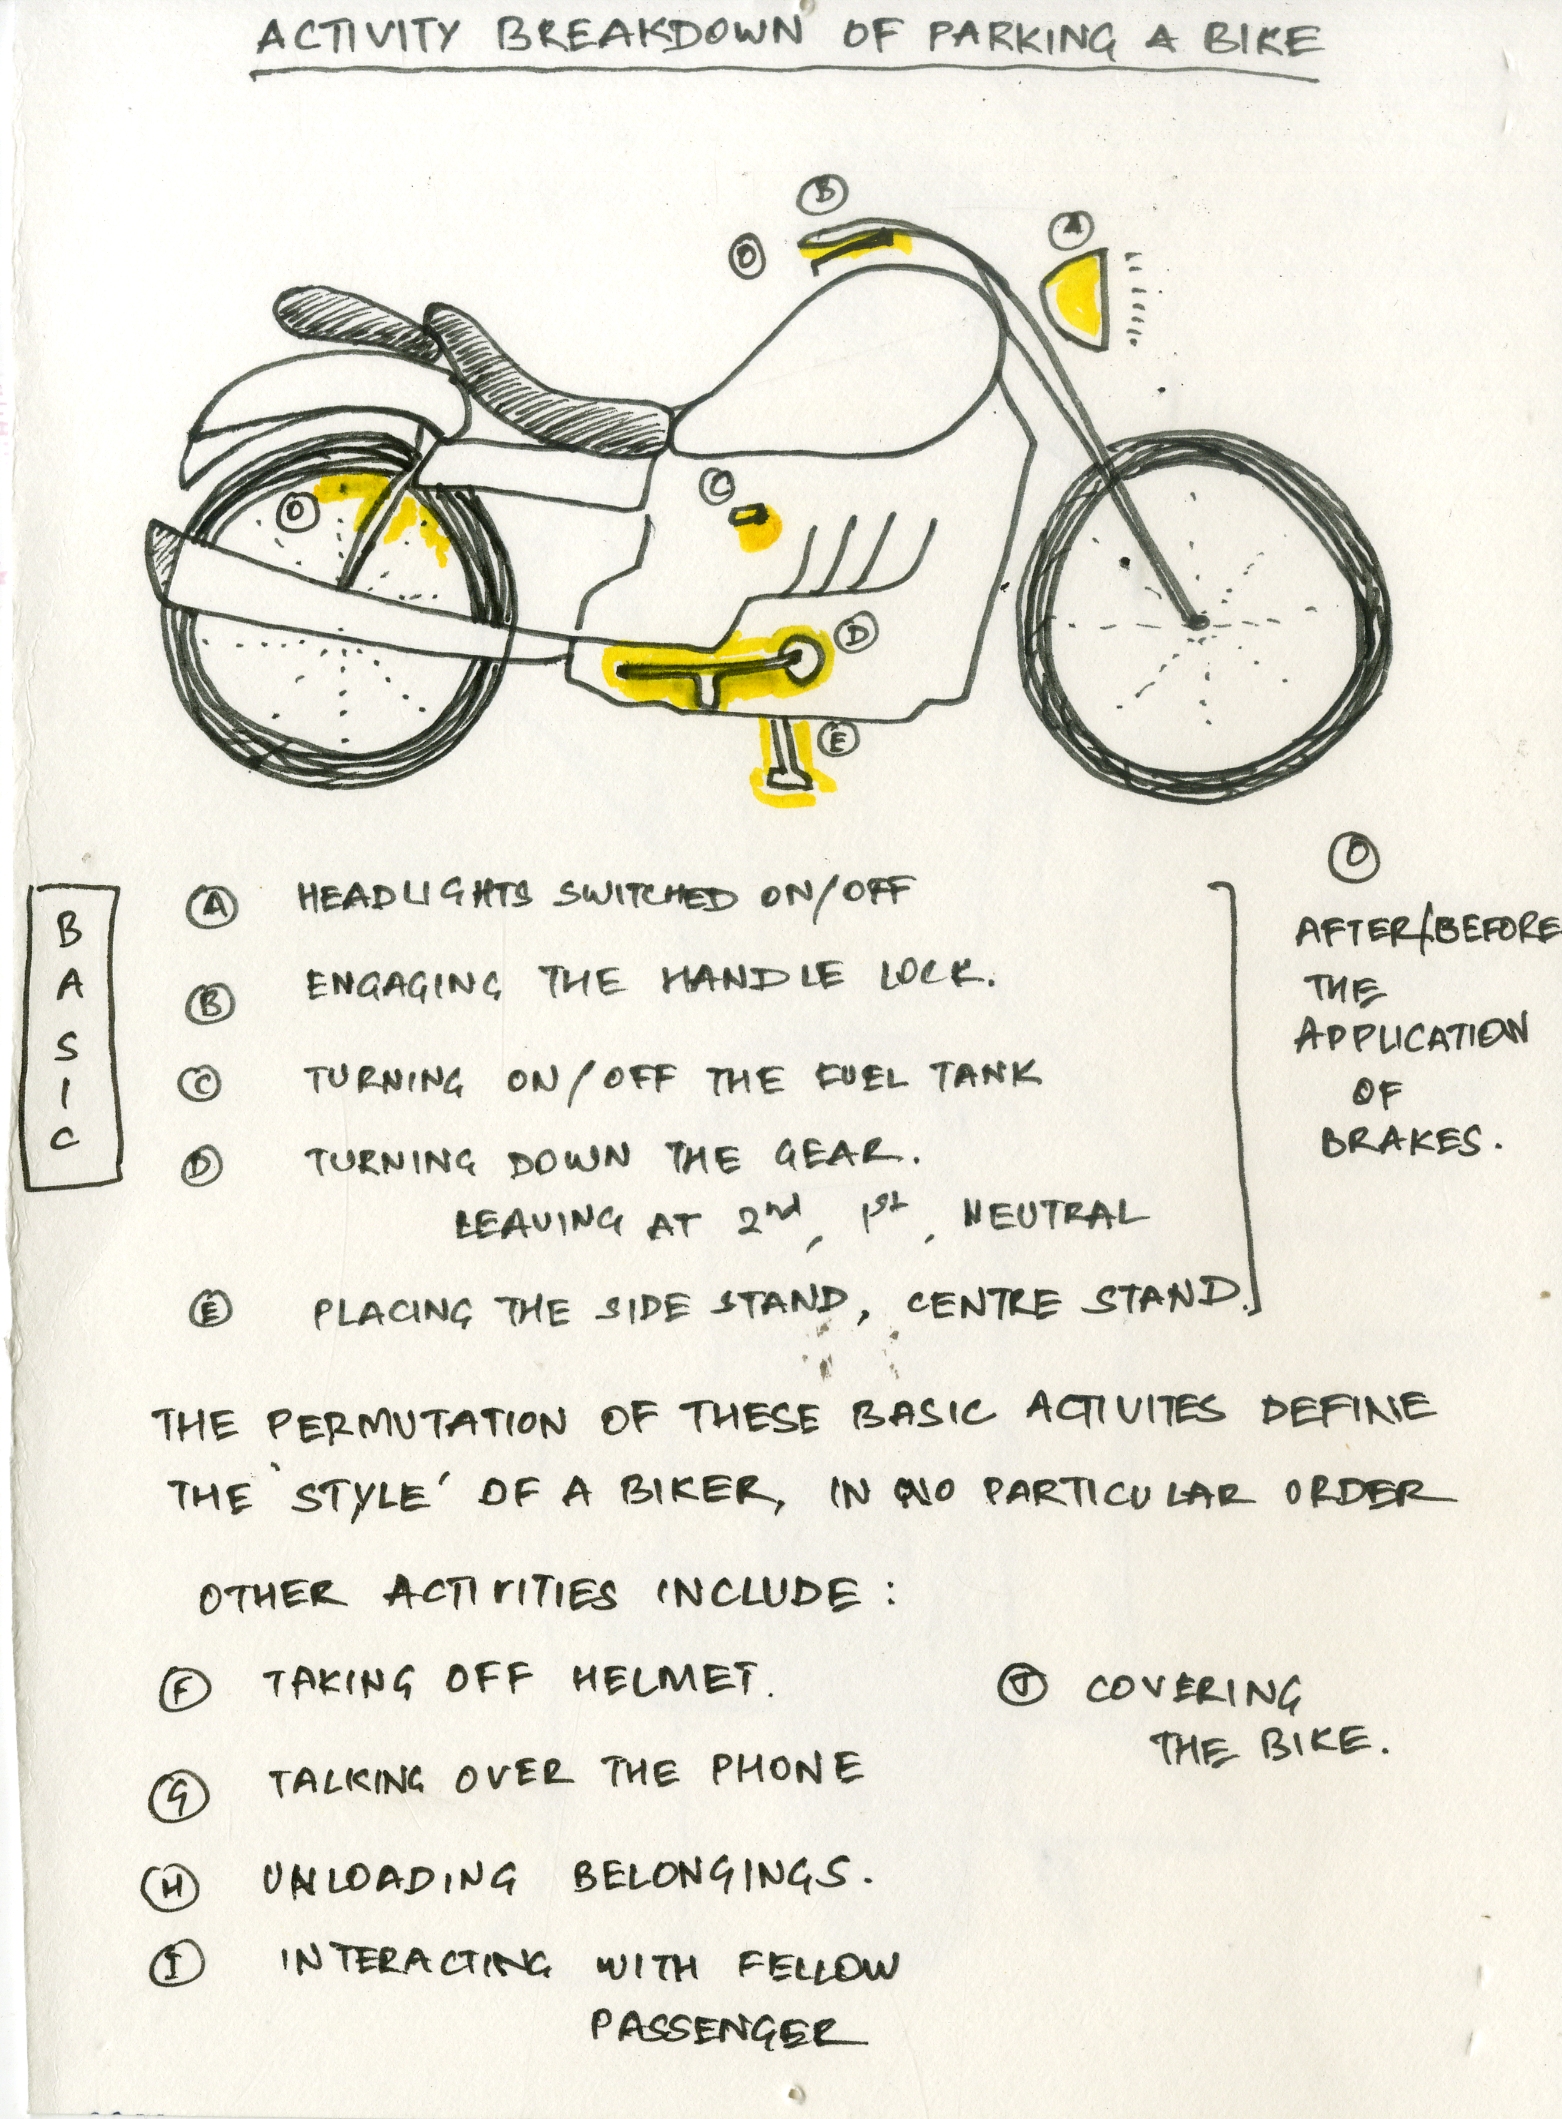 ACTIVITY BREAKDOWN OF PARKING A BIKE
B
A
O
C
O
D
E
BASIC
A HEADLIGHTS SWITCHED ON/OFF
B ENGAGING THE HANDLE LOCK.
C TURNING ON/OFF THE FUEL TANK
D TURNING DOWN THE GEAR.
LEAVING AT 2nd, 1st, NEUTRAL
E PLACING THE SIDE STAND, CENTRE STAND.
O
AFTER/BEFORE
THE
APPLICATION
OF
BRAKES.
THE PERMUTATION OF THESE BASIC ACTIVITES DEFINE
THE 'STYLE' OF A BIKER, IN NO PARTICULAR ORDER
OTHER ACTIVITIES INCLUDE:
F TAKING OFF HELMET.
G TALKING OVER THE PHONE
H UNLOADING BELONGINGS.
I INTERACTING WITH FELLOW
PASSENGER
J COVERING
THE BIKE.